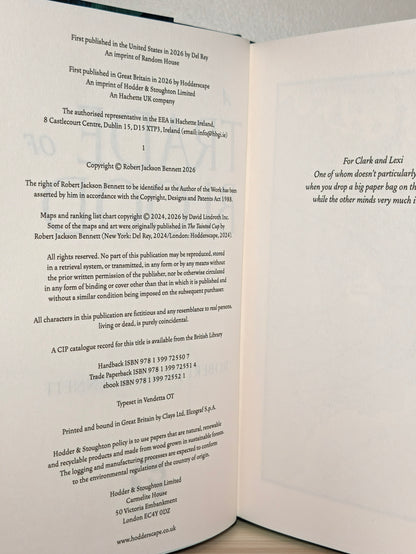 First published in the United States in 2026 by Del Rey
An imprint of Random House
First published in Great Britain in 2026 by Hodderscape
An imprint of Hodder & Stoughton Limited
An Hachette UK company
The authorised representative in the EEA is Hachette Ireland,
8 Castlecourt Centre, Dublin 15, D15 XTP3, Ireland (email: info@hbgi.ie)
1
Copyright © Robert Jackson Bennett 2026
The right of Robert Jackson Bennett to be identified as the Author of the Work has been
asserted by him in accordance with the Copyright, Designs and Patents Act 1988.
Maps and ranking list chart copyright © 2024, 2026 by David Lindroth Inc.
Some of the maps and art were originally published in The Tainted Cup by
Robert Jackson Bennett (New York: Del Rey, 2024/London: Hodderscape, 2024).
All rights reserved. No part of this publication may be reproduced, stored
in a retrieval system, or transmitted, in any form or by any means without
the prior written permission of the publisher, nor be otherwise circulated
in any form of binding or cover other than that in which it is published and
without a similar condition being imposed on the subsequent purchaser.
All characters in this publication are fictitious and any resemblance to real persons,
living or dead, is purely coincidental.
A CIP catalogue record for this title is available from the British Library
Hardback ISBN 978 1 399 72550 7
Trade Paperback ISBN 978 1 399 72551 4
ebook ISBN 978 1 399 72552 1
Typeset in Vendetta OT
Printed and bound in Great Britain by Clays Ltd, Elcograf S.p.A.
Hodder & Stoughton policy is to use papers that are natural, renewable
and recyclable products and made from wood grown in sustainable forests.
The logging and manufacturing processes are expected to conform
to the environmental regulations of the country of origin.
Hodder & Stoughton Limited
Carmelite House
50 Victoria Embankment
London EC4Y 0DZ
www.hodderscape.co.uk
For Clark and Lexi
One of whom doesn't particularly
when you drop a big paper bag on th
while the other minds very much i